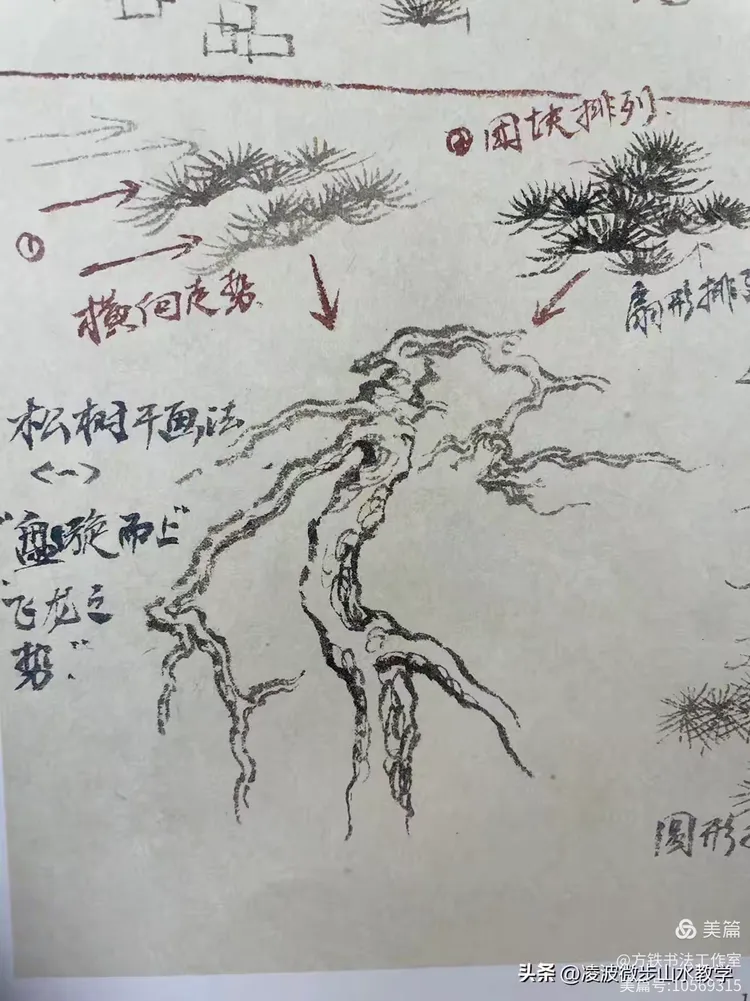 ②团块排列
①
横向走势
扇形排列
松树干画法
<一>
"盘旋而上"
飞龙之
势."
圆形
美篇
@方铁书法工作室
头条 @凌波微步山水教学
美篇号:10569315